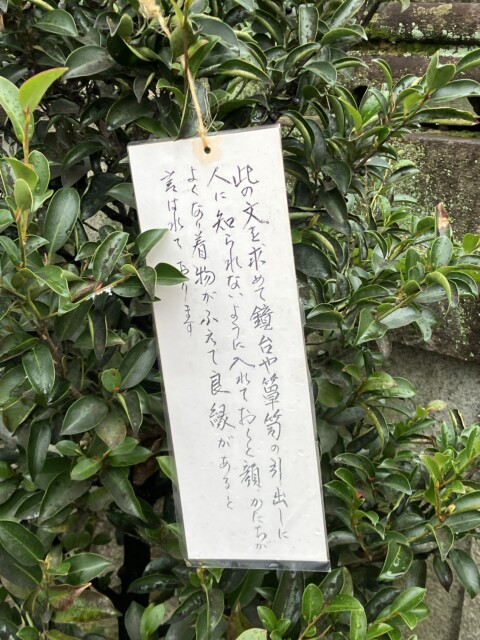 此の文を求めて鏡台や簞笥の引出しに
人に知られないように入れておくと顔かたちが
よくなり着物がふえて良縁があると
言はれております